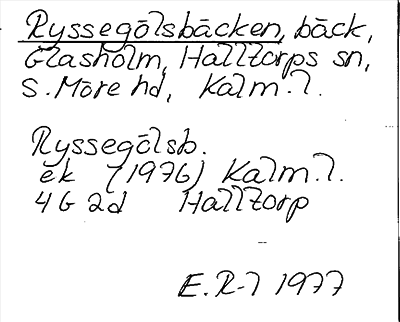 Ryssegölsbäcken, bäck,
Glasholm, Halltorps sn,
S. Möre hd, Kalm. l.
Ryssegölsb.
ek (1976) Kalm. l.
4 G 2d Halltorp
E. R-l 1977